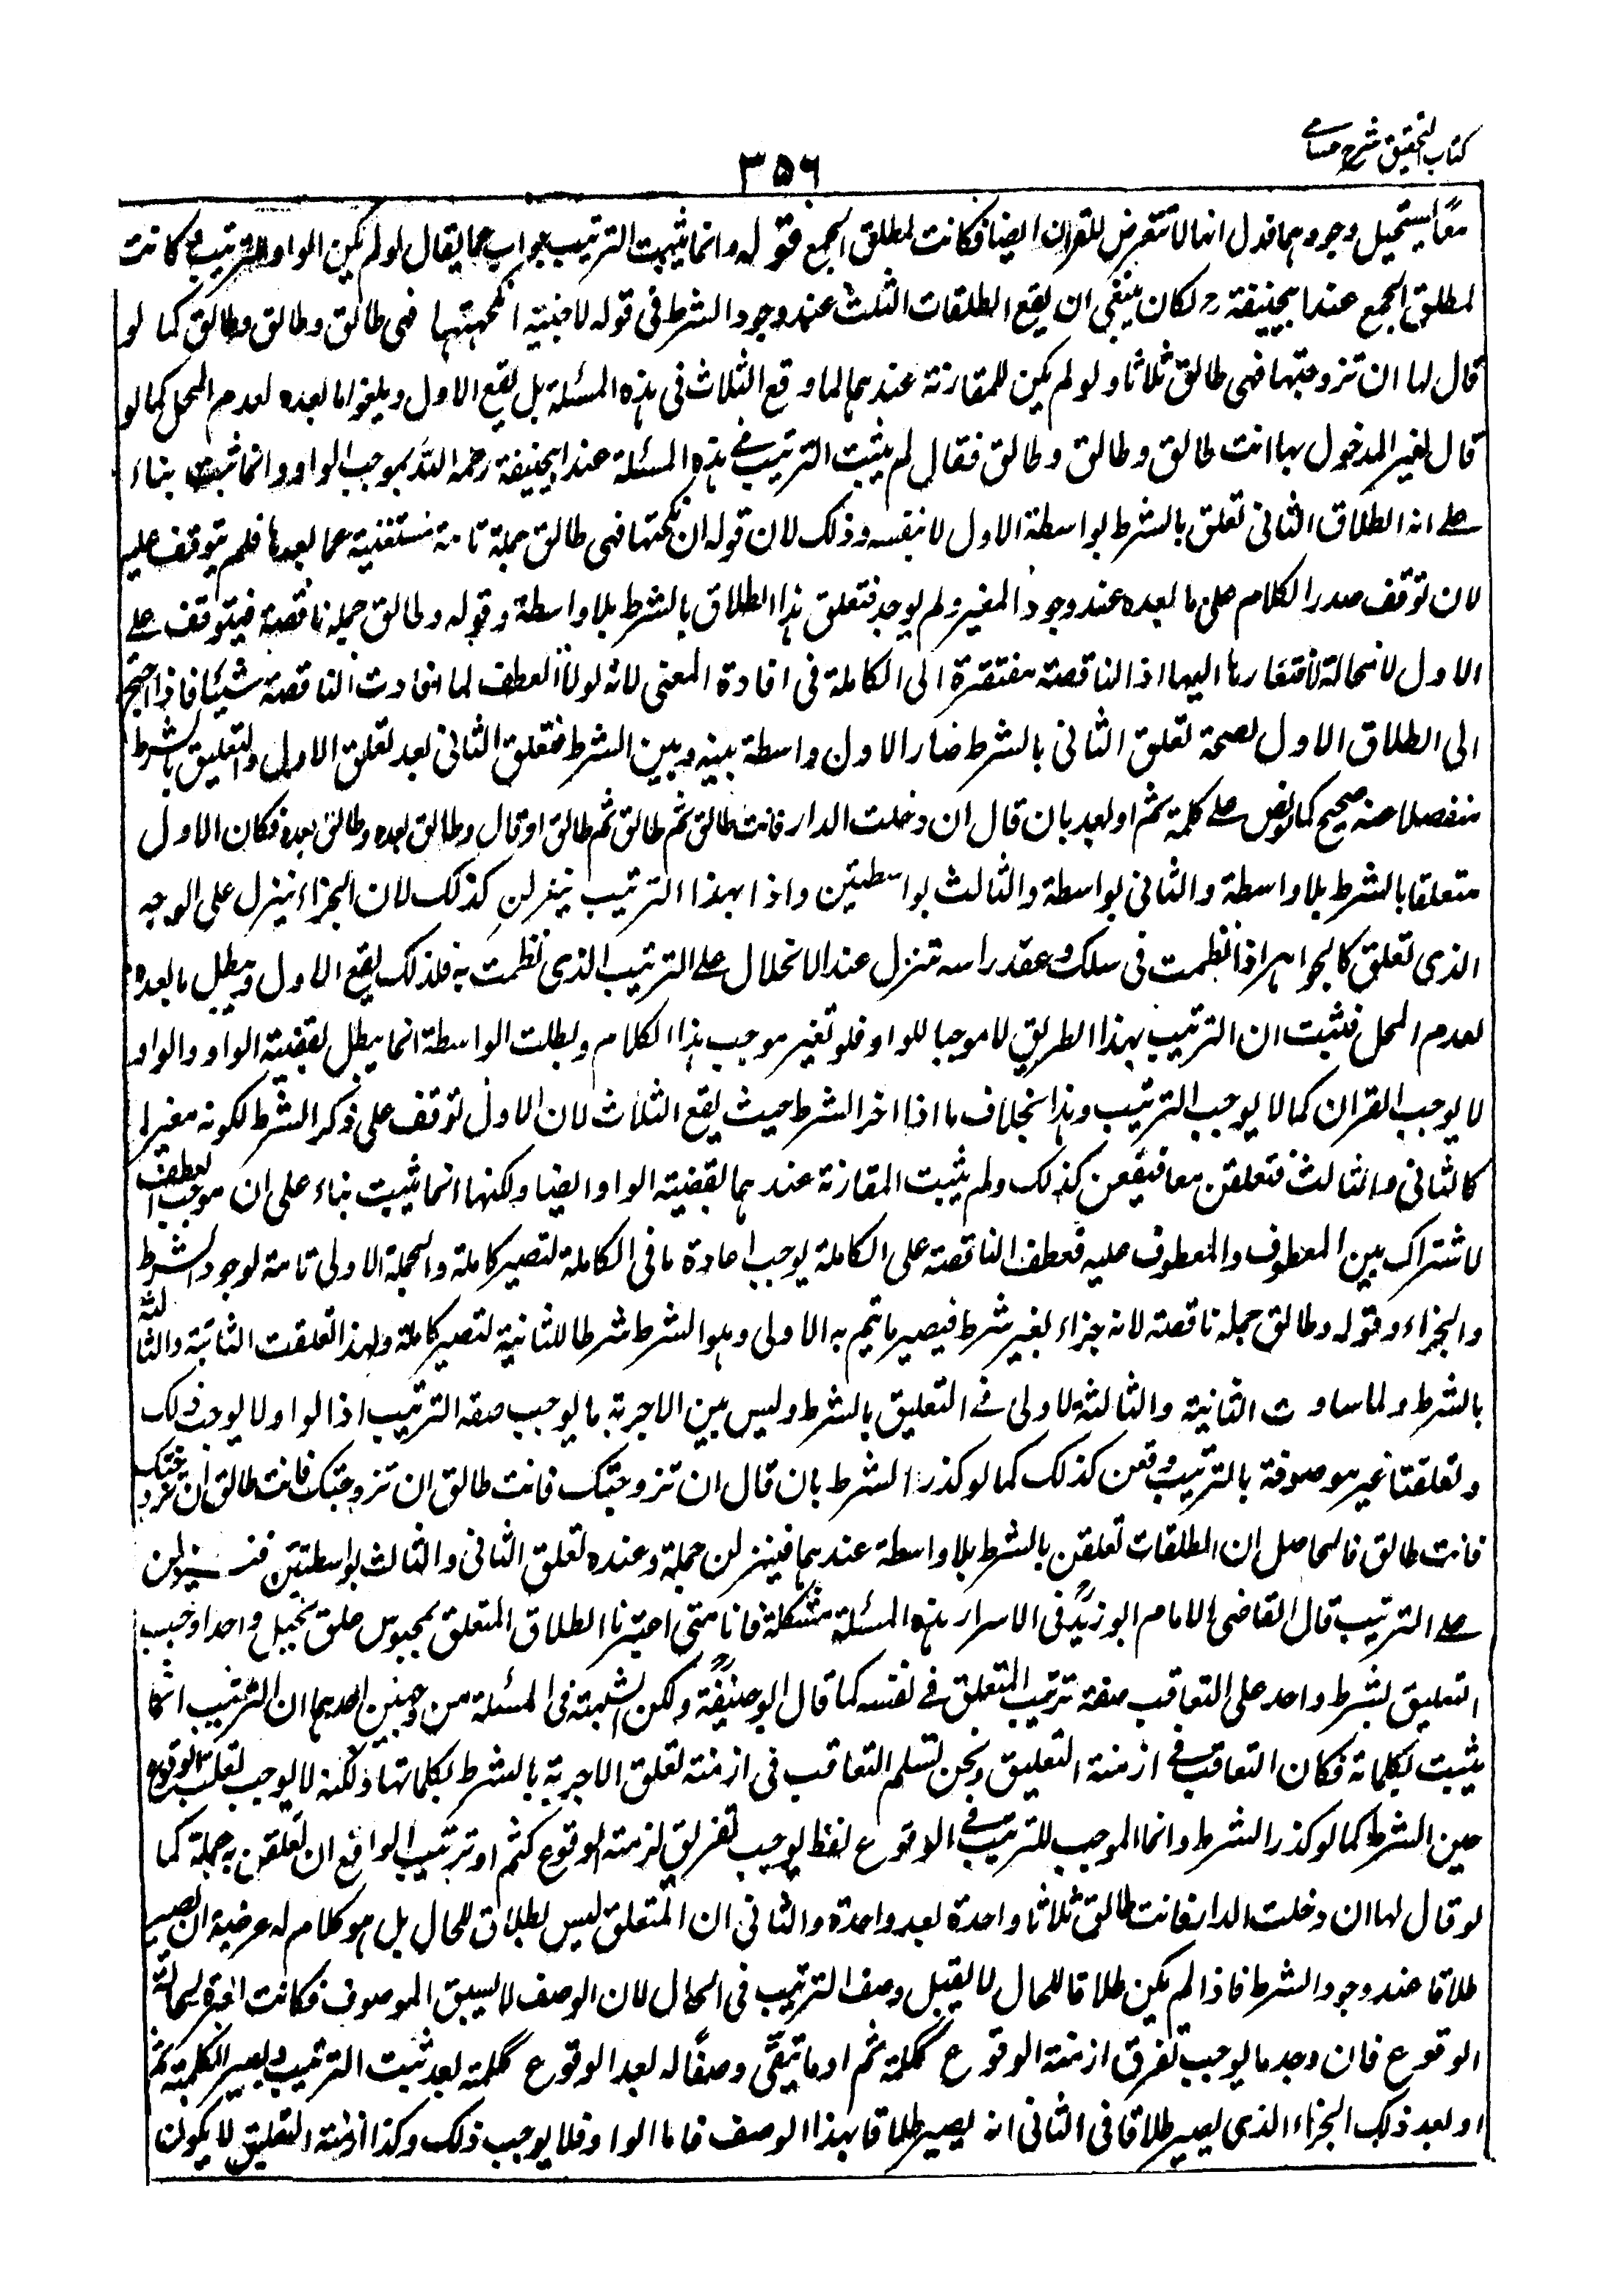 كتاب التحقيق شرح حسامي
٣٥٦
معا يستحيل وجودهما فدل انها لا تتعرض للقران ايضا فكانت لمطلق الجمع قوله وانما يثبت الترتيب جواب عما يقال لو لم يكن الواو للترتيب وكانت
لمطلق الجمع عند ابيحنيفة رح لكان ينبغي ان يقع الطلقات الثلث عند وجود الشرط في قوله لاجنبية ان نكحتها فهي طالق وطالق وطالق كما لو
قال لها ان تزوجتها فهي طالق ثلاثا ولو لم يكن للمقارنة عندهما لما وقع الثلاث في هذه المسئلة بل يقع الاول ويلغوا ما بعده لعدم المحل كما لو
قال لغير المدخول بها انت طالق وطالق وطالق فقال لم يثبت الترتيب في هذه المسئلة عند ابيحنيفة رحمه الله بموجب الواو وانما ثبت بناء
على انه الطلاق الثاني تعلق بالشرط بواسطة الاول لا بنفسه وذلك لان قوله ان نكحتها فهي طالق جملة تامة مستغنية عما بعدها فلم يتوقف عليه
لان توقف صدر الكلام على ما بعده عند وجود المغير ولم يوجد فتعلق هذا الطلاق بالشرط بلا واسطة وقوله وطالق جملة ناقصة فيتوقف على
الاول لا محالة لافتقارها اليها اذ الناقصة مفتقرة الى الكاملة في افادة المعنى لانه لولا العطف لما افادت الناقصة شيئا فاذا احتيج
الى الطلاق الاول لصحة تعلق الثاني بالشرط صار الاول واسطة بينه وبين الشرط فتعلق الثاني بعد تعلق الاول والتعليق بالشرط
منفصلا عنه صحيح كما لو نص على كلمة ثم او بعد بان قال ان دخلت الدار فانت طالق ثم طالق ثم طالق او قال وطالق بعده وطالق بعده فكان الاول
متعلقا بالشرط بلا واسطة والثاني بواسطة والثالث بواسطتين واذا بهذا الترتيب ينزلن كذلك لان الجزاء ينزل على الوجه
الذي تعلق كالجواهر اذا نظمت في سلك وعقد راسه تنزل عند الانحلال على الترتيب الذي نظمت به فلذلك يقع الاول ويبطل ما بعده
لعدم المحل فثبت ان الترتيب بهذا الطريق لا موجبا للواو فلو تغير موجب هذا الكلام وبطلت الواسطة انما يبطل بقضية الواو والواو
لا يوجب القران كما لا يوجب الترتيب وهذا بخلاف ما اذا اخر الشرط حيث يقع الثلاث لان الاول توقف على ذكر الشرط لكونه مغيرا
كالثاني والثالث فتعلقن معا فيقعن كذلك ولم يثبت المقارنة عندهما بقضية الواو ايضا ولكنها انما ثبتت بناء على ان موجب العطف
لاشتراك بين المعطوف والمعطوف عليه فعطف الناقصة على الكاملة يوجب اعادة ما في الكاملة لتصير كاملة والجملة الاولى تامة لوجود الشرط
والجزاء وقوله وطالق جملة ناقصة لانه جزاء بغير شرط فيصير ما تم به الاولى وهو الشرط شرطا للثانية لتصير كاملة ولهذا تعلقت الثانية والثالثة
بالشرط ولما ساوت الثانية والثالثة لاولى في التعليق بالشرط وليس بين الاجزية ما يوجب صفة الترتيب اذ الواو لا يوجب ذلك
وتعلقتا غير موصوفة بالترتيب وقعن كذلك كما لو كذر الشرط بان قال ان تزوجتك فانت طالق ان تزوجتك فانت طالق ان تزوجتك
فانت طالق فالحاصل ان الطلقات تعلقن بالشرط بلا واسطة عندهما فينزلن جملة وعنده تعلق الثاني والثالث بواسطتين فينزلن
على الترتيب قال القاضي الامام ابو زيد رح في الاسرار هذه المسئلة مشكلة فانا متى اعتبرنا الطلاق المتعلق بمحبوس علق بحبل واحد اوجب
التعليق بشرط واحد على التعاقب صفة ترتيب المتعلق في نفسه كما قال ابو حنيفة رح ولكن الشبهة في المسئلة من وجهين احدهما ان الترتيب انما
يثبت لكلماته فكان التعاقب في ازمنة التعليق ونحن نسلم التعاقب في ازمنة تعلق الاجزية بالشرط لكلماتها ولكنه لا يوجب تعاقب الوقوع
حين الشرط كما لو كذر الشرط وانما الموجب للترتيب في الوقوع لفظ يوجب تفريق ازمنة الوقوع كثم او ترتيب الواقع ان تعلقن به جملة كما
لو قال لها ان دخلت الدار فانت طالق ثلاثا واحدة بعد واحدة والثاني ان المتعلق ليس بطلاق للحال بل هو كلام له عرضية ان يصير
طلاقا عند وجود الشرط فاذا لم يكن طلاقا للحال لا يقبل وصف الترتيب في الحال لان الوصف لا يسبق الموصوف فكانت العبرة لحالة
الوقوع فان وجد ما يوجب تفرق ازمنة الوقوع ككلمة ثم او ما يبقى وصفا له بعد الوقوع ككلمة بعد ثبت الترتيب ويصير الكلمة ثم
او بعد ذلك الجزاء الذي يصير طلاقا في الثاني انه يصير طلاقا بهذا الوصف فاما الواو فلا يوجب ذلك وكذا ازمنة التعليق لا يكون